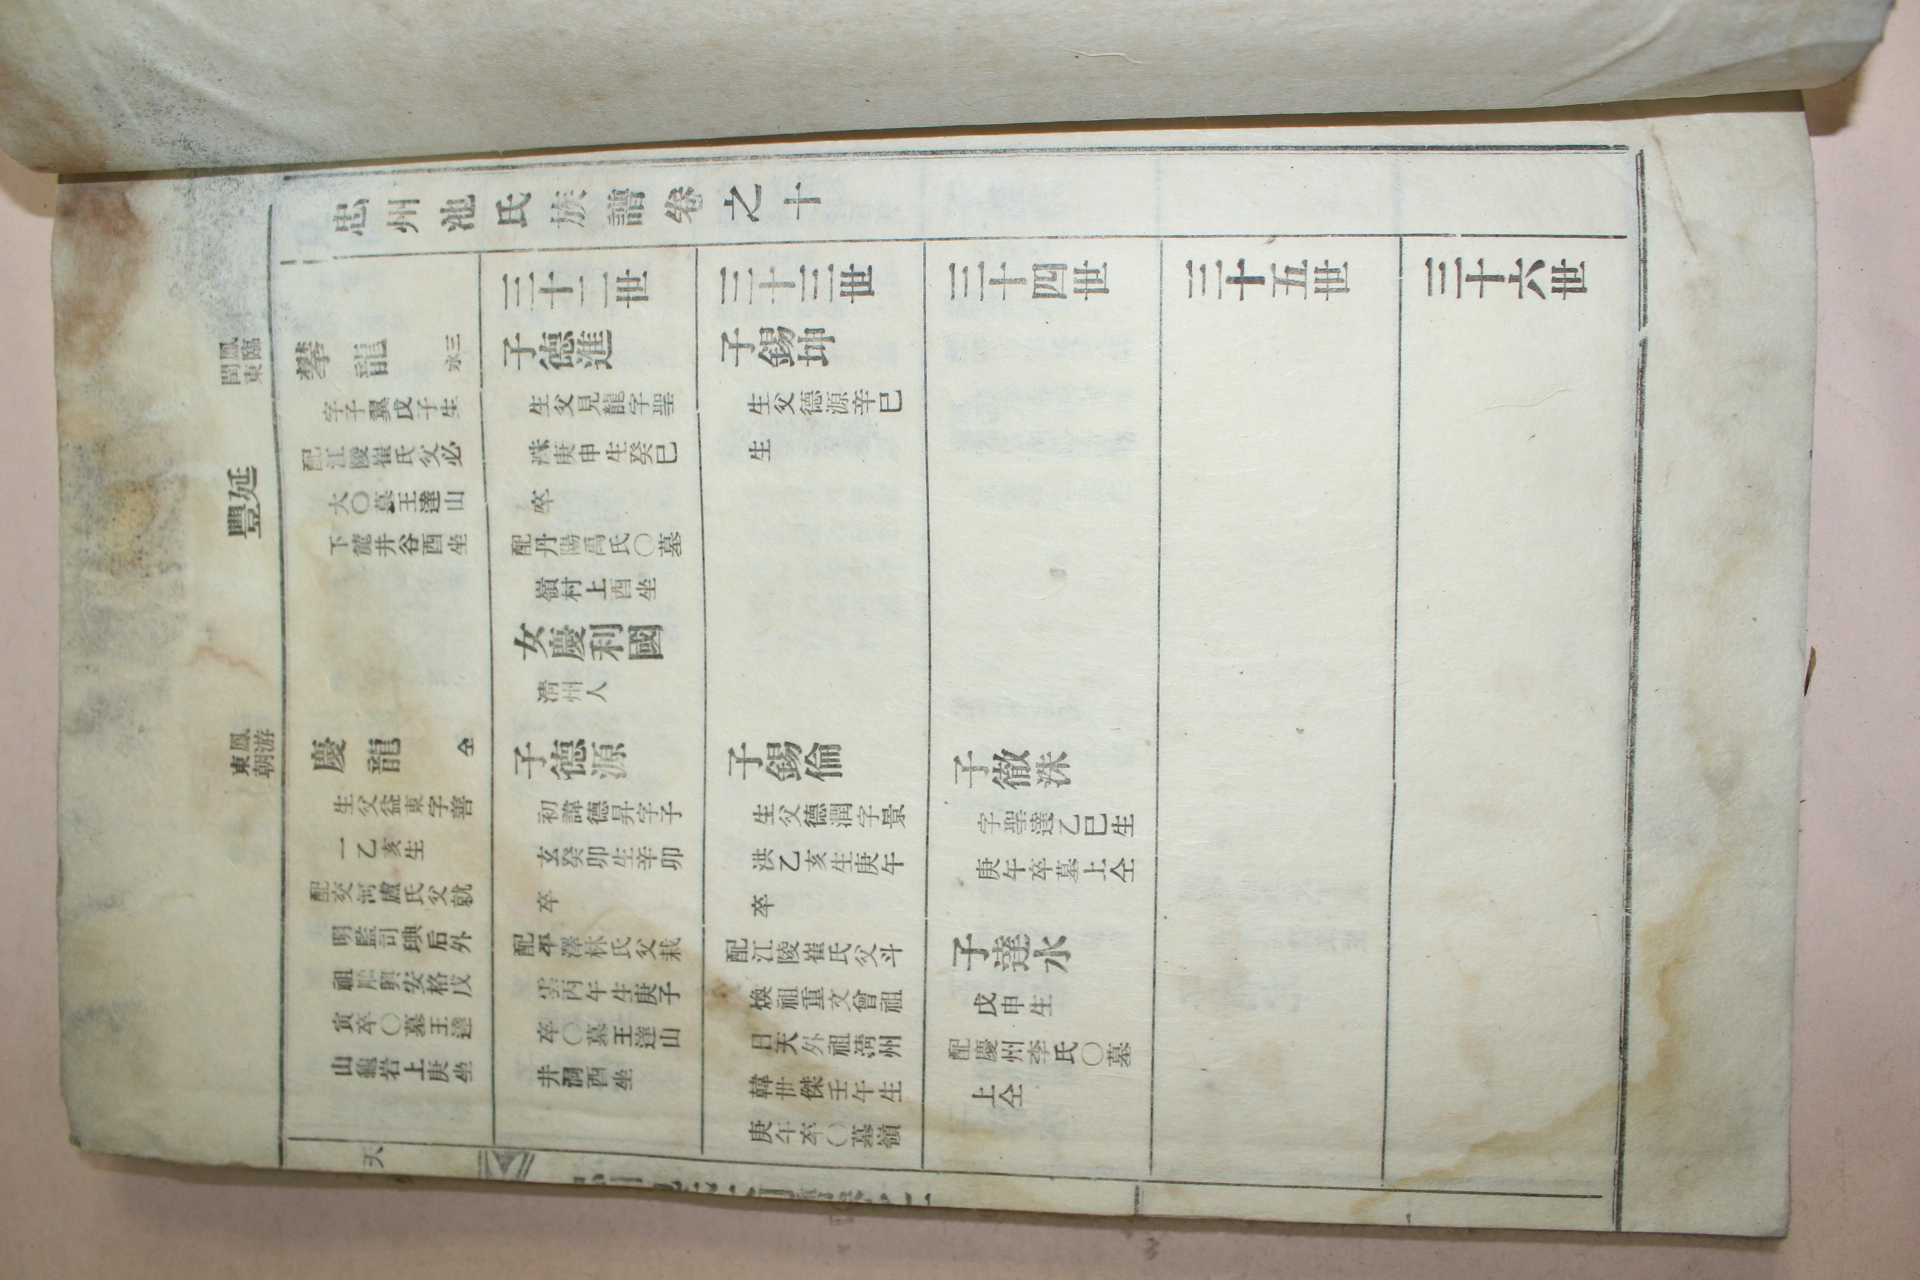 忠州池氏族譜卷之十
三十二世
三十三世
三十四世
三十五世
三十六世
豐延
攀龍
字子翼戊子生
配江陵崔氏父必
大〇墓王達山
下龍井谷酉坐
子德進
生父見龍字聖
洙庚申生癸巳
卒
配丹陽禹氏〇墓
嶺村上酉坐
女慶利國
淸州人
子錫坤
生父德源辛巳
生
慶龍
仝
生父益東字善
一乙亥生
配交河盧氏父就
明監司琠后外
祖順興安格戊
寅卒〇墓王達
山龜岩上庚坐
子德源
初諱德昇字子
玄癸卯生辛卯
卒
配平澤林氏父栽
雲丙午生庚子
卒〇墓王達山
井洞酉坐
子錫倫
生父德潤字景
洪乙亥生庚午
卒
配江陵崔氏父斗
煥祖重文曾祖
日天外祖淸州
韓世傑壬午生
庚午卒〇墓嶺
子徹洙
字聖達乙巳生
庚午卒墓上仝
子達水
戊申生
配慶州李氏〇墓
上仝